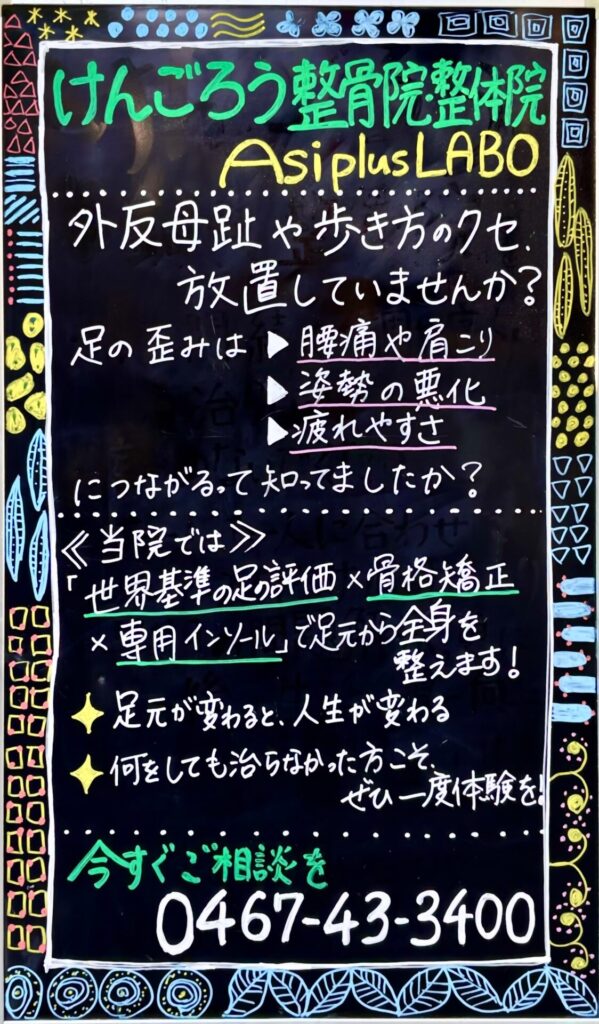 けんごろう整骨院・整体院
AsiplusLABO
外反母趾や歩き方のクセ、
放置していませんか?
足の歪みは ▶腰痛や肩こり
▶姿勢の悪化
▶疲れやすさ
につながるって知ってましたか?
≪当院では≫
「世界基準の足の評価×骨格矯正
×専用インソール」で足元から全身を
整えます!
足元が変わると、人生が変わる
何をしても治らなかった方こそ、
ぜひ一度体験を!
今すぐご相談を
0467-43-3400